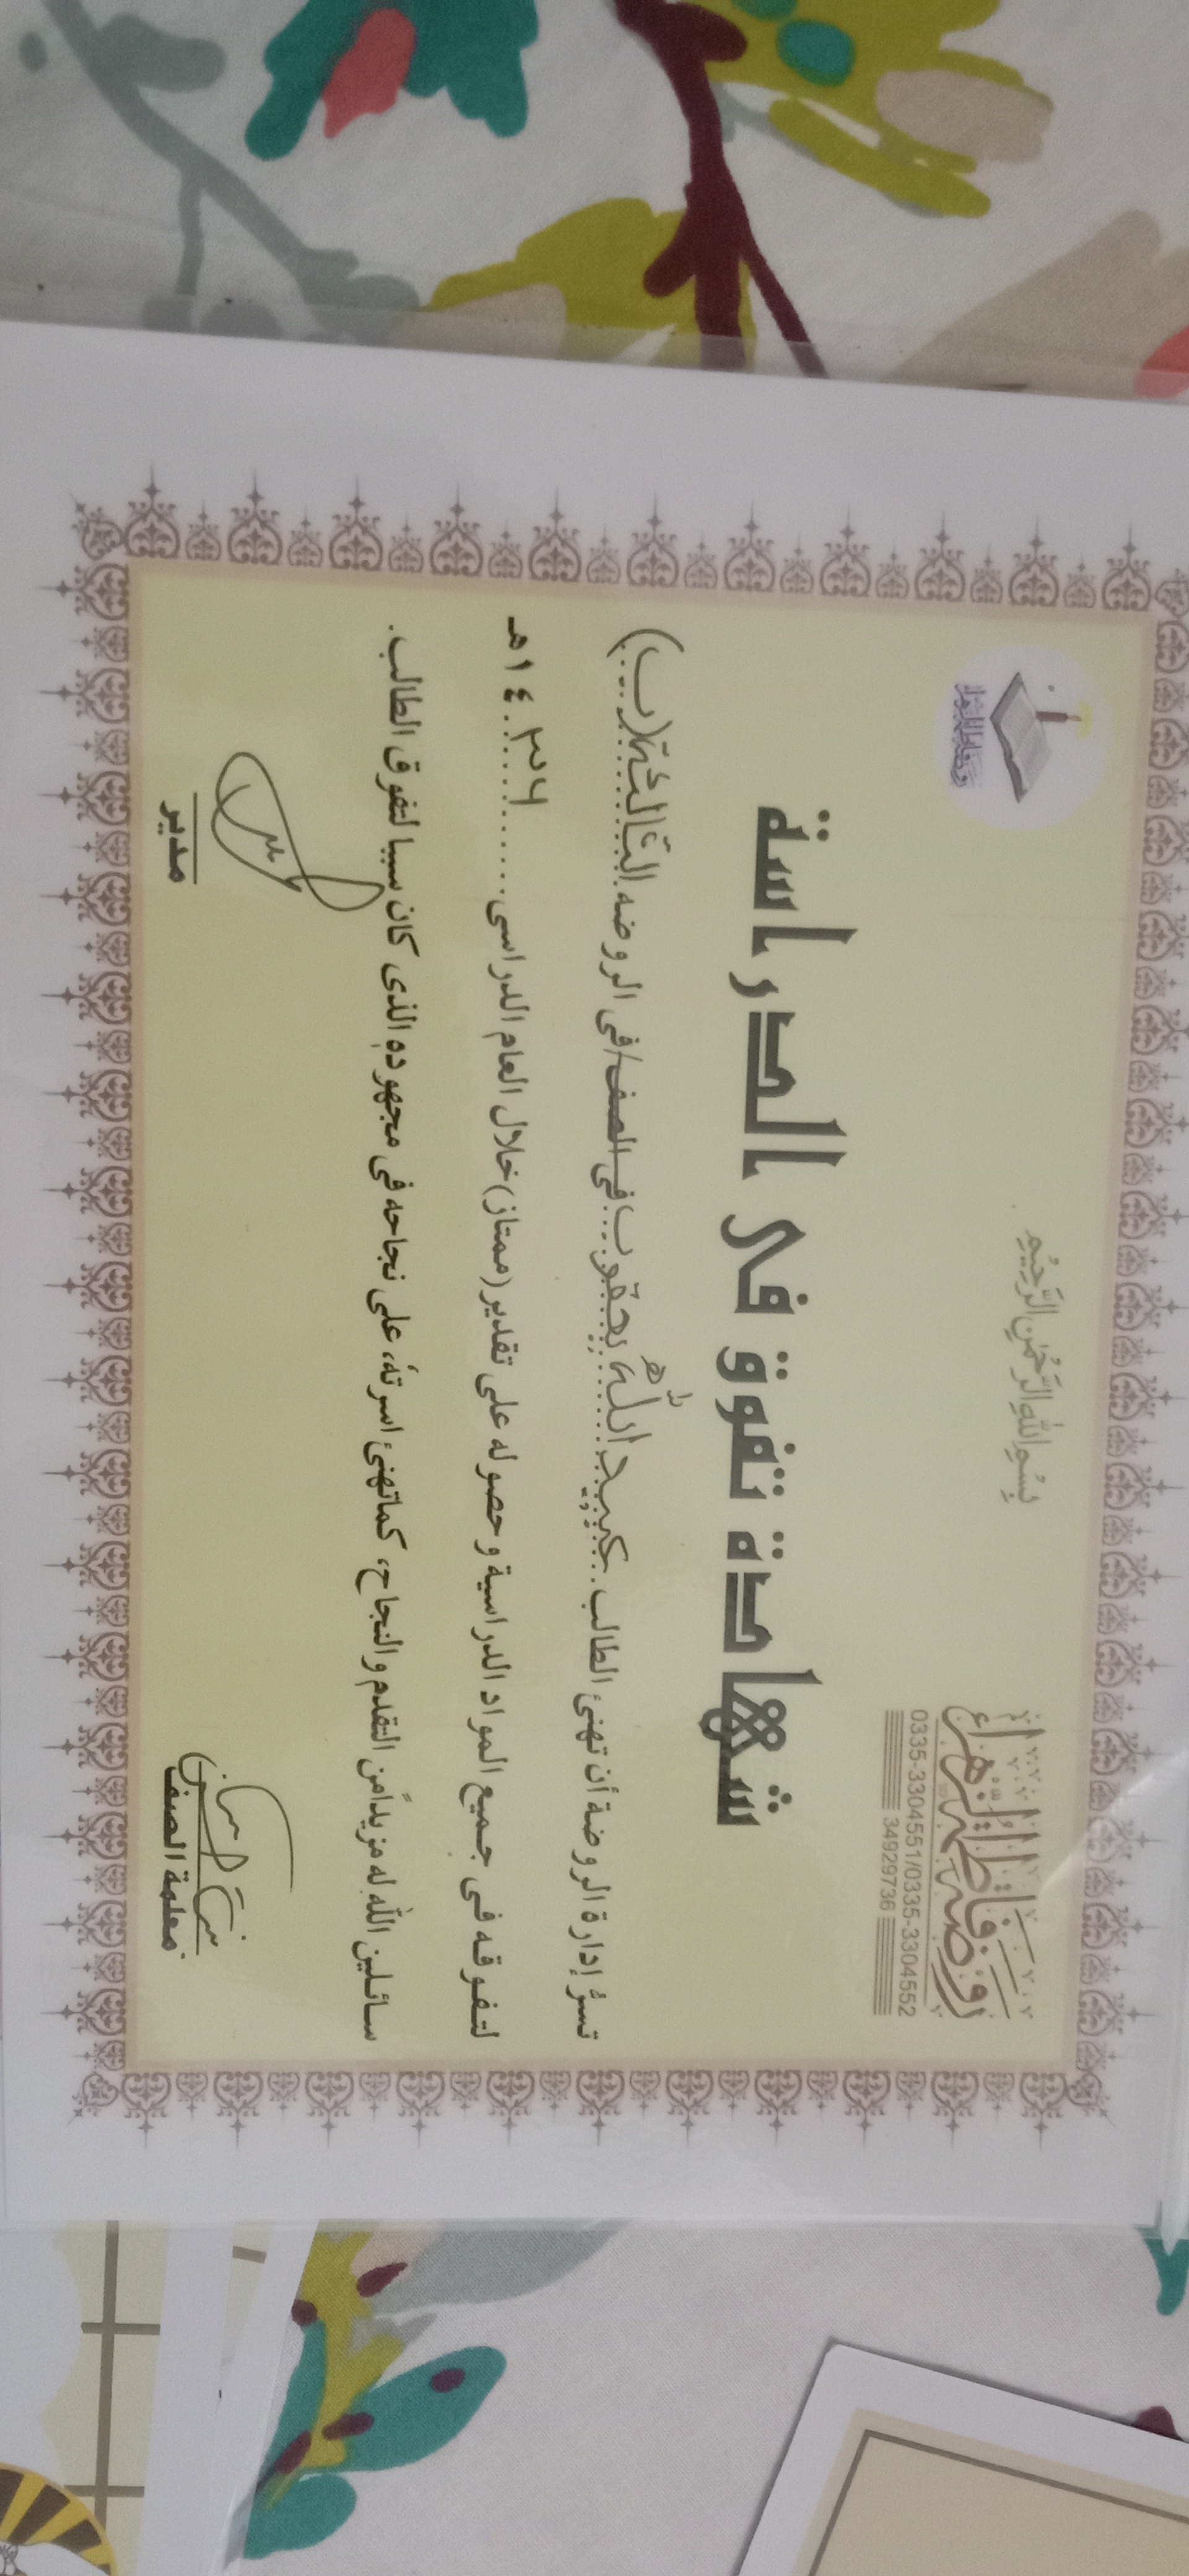 بِسْمِ اللهِ الرَّحْمٰنِ الرَّحِيْمِ
روضة فاطمة الزهراء
0335-3304551/0335-3304552
34929736
شهادة تفوق فى الدراسة
تسرُّ إدارة الروضة أن تهنئ الطالب عبيد اللّٰه يعقوب فى الصف/فى الروضه الثالثة (ب)
لتفوقه فى جميع المواد الدراسية و حصوله على تقدير (ممتاز) خلال العام الدراسى ١٤٣٦هـ
سائلين الله له مزيداً من التقدم و النجاح، كما تهنئ اسرته، على نجاحه فى مجهوده الذى كان سببا لتفوق الطالب.
معلمة الصف
مدير